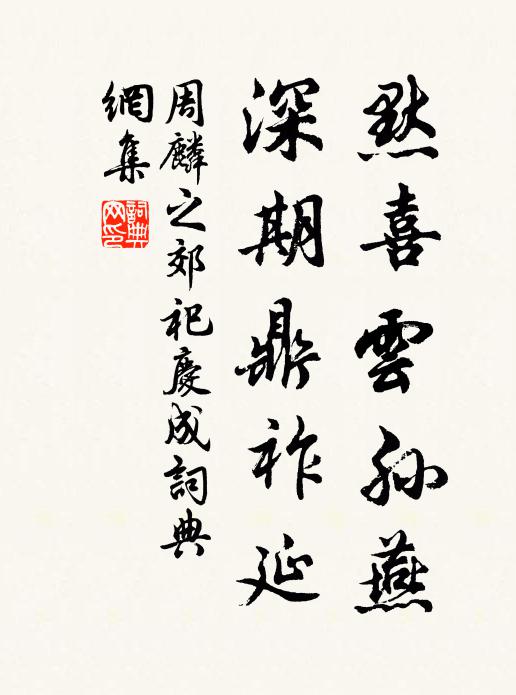 默喜雲孫燕
深期鼎祚延
周麟之郊祀慶成詞典
網集
詞典網印